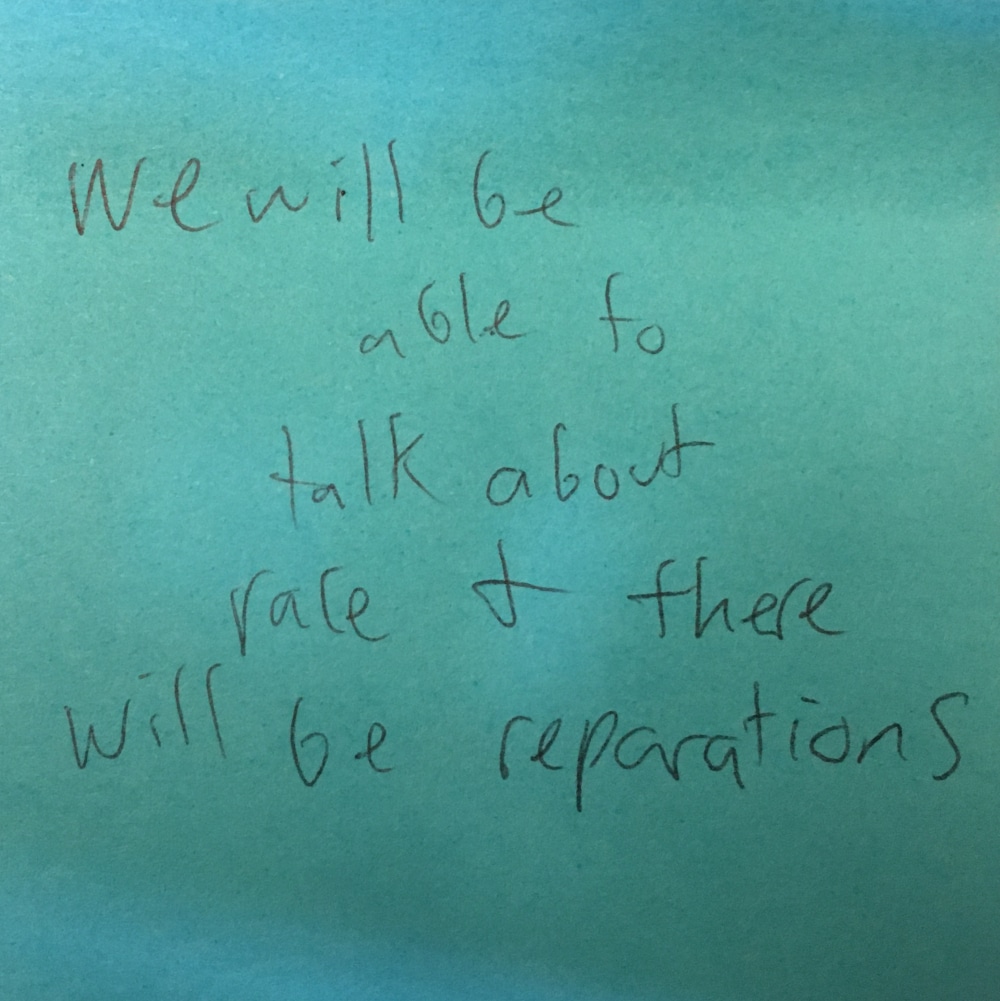 We will be
able to
talk about
race + there
will be reparations